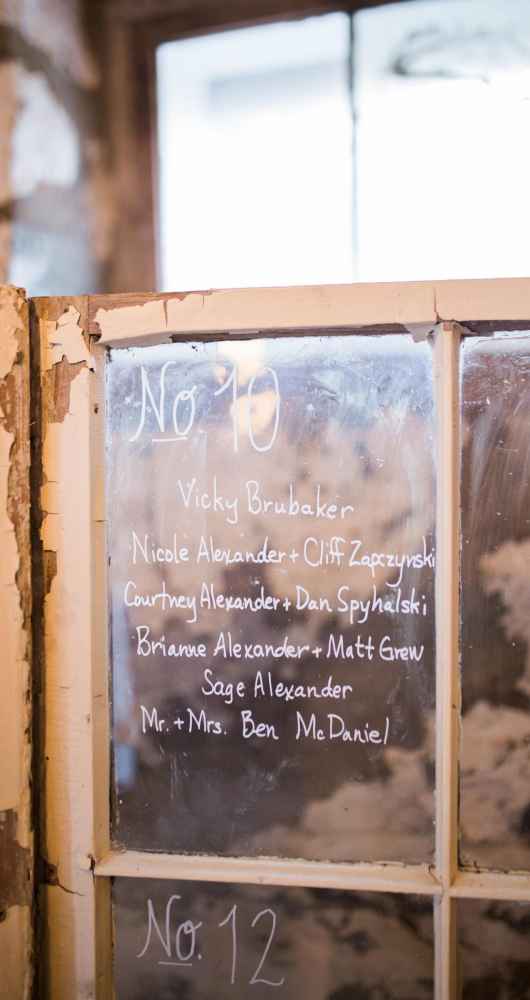 No. 10
Vicky Brubaker
Nicole Alexander + Cliff Zapczynski
Courtney Alexander + Dan Spyhalski
Brianne Alexander + Matt Grew
Sage Alexander
Mr. + Mrs. Ben McDaniel
No. 12